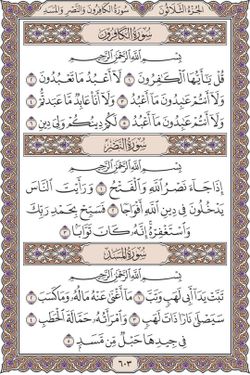 الجزء الثلاثون سورة الكافرون والنصر والمسد
سورة الكافرون
بسم الله الرحمن الرحيم
قل يأيها الكفرون ١ لا أعبد ما تعبدون ٢
ولا أنتم عبدون ما أعبد ٣ ولا أنا عابد ما عبدتم ٤
ولا أنتم عبدون ما أعبد ٥ لكم دينكم ولي دين ٦
سورة النصر
بسم الله الرحمن الرحيم
إذا جاء نصر الله والفتح ١ ورأيت الناس
يدخلون في دين الله أفواجا ٢ فسبح بحمد ربك
واستغفره إنه كان توابا ٣
سورة المسد
بسم الله الرحمن الرحيم
تبت يدا أبي لهب وتب ١ ما أغنى عنه ماله وما كسب ٢
سيصلى نارا ذات لهب ٣ وامرأته حمالة الحطب ٤
في جيدها حبل من مسد ٥
٦٠٣